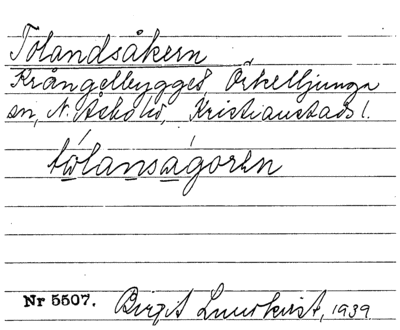 Tolandsåkern
Krångelbygget, Örkelljunga
sn, N. Åsbo hd, Kristianstads l.
tólansàgoren
Nr 5507. Birgit Lundkvist, 1939